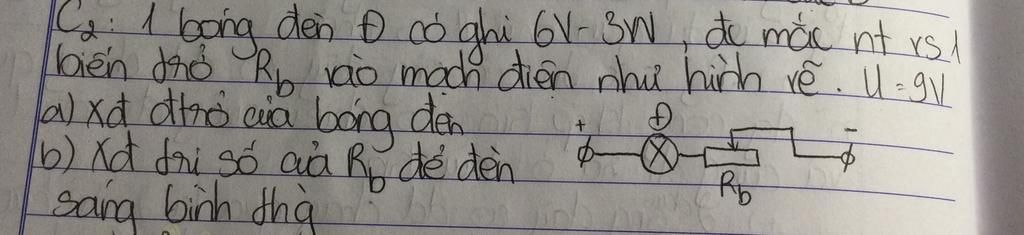 C₂: 1 bóng đèn Đ có ghi 6V-3W, đc mắc nt vs 1
biến trở Rb vào mạch điện như hình vẽ. U=9V
a) Xđ đtrở của bóng đèn
b) Xđ trị số của Rb để đèn
sáng bình thg
+ Đ -
Rb